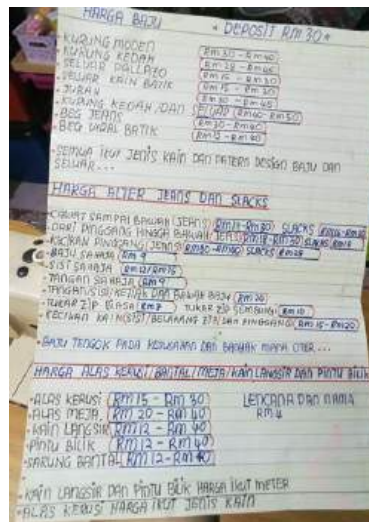 HARGA BAJU * DEPOSIT RM 30 *
• KURUNG MODEN RM30 - RM40
• KURUNG KEDAH
• SELUAR PALLAZO
• SELUAR KAIN BATIK
• JUBAH
• KURUNG KEDAH DAN SELUAR RM40 - RM50
• BEG JEANS RM30 - RM40
• BEG VIRAL BATIK RM15 - RM40
• SEMUA IKUT JENIS KAIN DAN PATERN DESIGN BAJU DAN
SELUAR...
HARGA ALTER JEANS DAN SLACKS
SAMPAI BAWAH (JEANS) SLACKS
• DARI PINGGANG HINGGA BAWAH SLACKS
• KECIKAN PINGGANG (JEANS) RM30 - RM40 SLACKS
• BAJU SAHAJA RM 9
• SISI SAHAJA RM12/RM15
• TANGAN SAHAJA RM9
• TANGAN/SISI/KETIAK DAN BAWAH BAJU RM20
• TUKAR ZIP BIASA RM8 TUKAR ZIP SEMBUNYI RM10
• KECILKAN KAIN (SISI/BELAKANG ZIP DAN PINGGANG) RM15 - RM20
• BAJU TENGOK PADA KEBUKAAN DAN BANYAK MANA OTER...
HARGA ALAS KERUSI/BANTAL/MEJA/KAIN LANGSIR DAN PINTU BILIK
• ALAS KERUSI RM15 - RM30 LENCANA DAN NAMA
• ALAS MEJA RM 20 - RM40 RM4
• KAIN LANGSIR RM12 - RM40
• PINTU BILIK RM12 - RM40
• SARUNG BANTAL RM12 - RM40
• KAIN LANGSIR DAN PINTU BILIK HARGA IKUT METER
• ALAS KERUSI HARGA IKUT JENIS KAIN